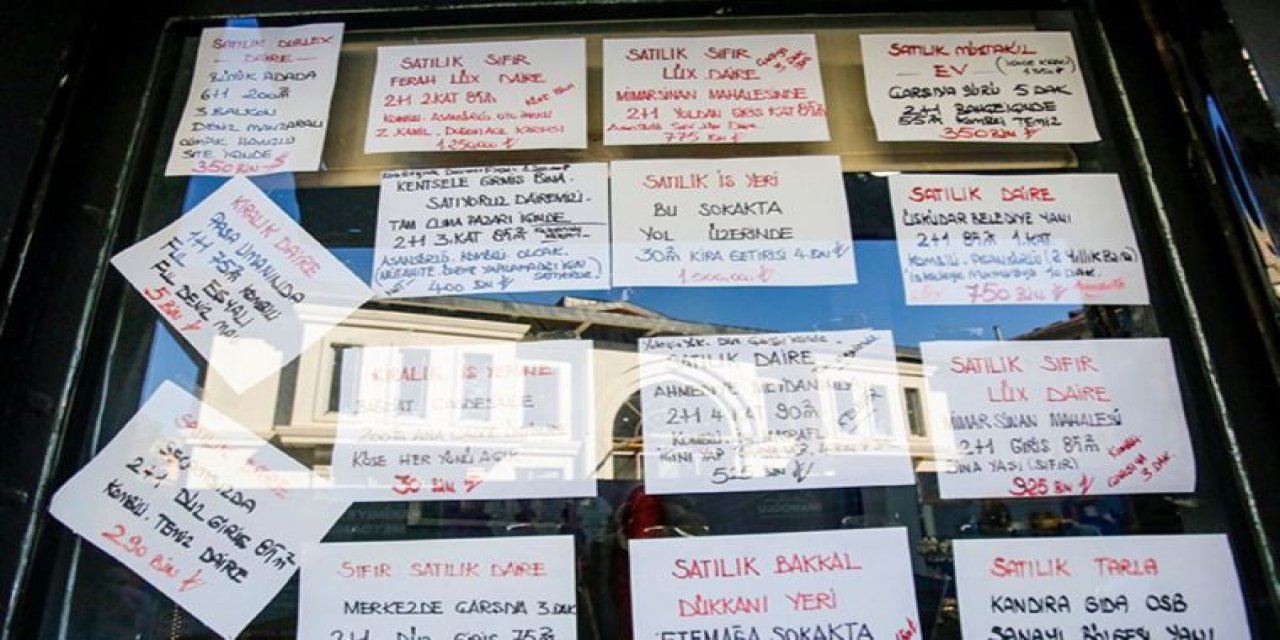 SATILIK DUBLEX
DAİRE
BÜYÜK ADADA
6+1 200m²
3 BALKON
DENİZ MANZARALI
HAVUZLU
SİTE İÇİNDE
350 BİN ₺
SATILIK SIFIR
FERAH LÜX DAİRE
2+1 2.KAT 85m²
KOMBİLİ. ASANSÖRLÜ. OTO PARKLI
Z. KAMİL.
1.250.000 ₺
SATILIK SIFIR
LÜX DAİRE
MİMARSİNAN MAHALESİNDE
2+1 YOLDAN GİRİŞ KAT 85m²
775 BİN ₺
SATILIK MÜSTAKİL
EV
ÇARŞIYA YÜRÜ 5 DAK
2+1 BAHÇE İÇİNDE
85m² KOMBİLİ TEMİZ
350 BİN ₺
KENTSELE GİRMİŞ BİNA.
SATIYORUZ DAİREMİZİ.
TAM CUMA PAZARI İÇİNDE
2+1 3.KAT 85m²
ASANSÖRLÜ. KOMBİLİ OLCAK.
400 BİN ₺
SATILIK İŞ YERİ
BU SOKAKTA
YOL ÜZERİNDE
30m² KİRA GETİRİSİ 4.BİN ₺
1.500.000 ₺
SATILIK DAİRE
ÜSKÜDAR BELEDİYE YANI
2+1 85m² 1.KAT.
KOMBİLİ. ASANSÖRLÜ (2 Yıllık Bina)
10 DAK.
750 BİN ₺
KİRALIK DAİRE
PAŞA LİMANINDA
1+1 75m² KOMBİLİ
FUL EŞYALI
FUL DENİZ
5 BİN ₺
KİRALIK İŞ YERİNE
CADDESİNE
KÖŞE HER YÖNÜ AÇIK
30 BİN ₺
SATILIK DAİRE
AHMEDİYE MEYDANI
2+1 4.KAT 90m²
SATILIK SIFIR
LÜX DAİRE
MİMAR SİNAN MAHALESİ
2+1 GİRİŞ 85m²
BİNA YAŞI (SIFIR)
925 BİN ₺
KOMBİLİ
ÇARŞIYA
3 DAK
2+1 DÜZ GİRİŞ 85m²
KOMBİLİ. TEMİZ DAİRE
290 BİN ₺
SIFIR SATILIK DAİRE
MERKEZDE ÇARŞIYA 3.DAK
2+1 DÜZ GİRİŞ 75m²
SATILIK BAKKAL
DÜKKANI YERİ
ETEMAĞA SOKAKTA
SATILIK TARLA
KANDIRA GIDA OSB
SANAYİ BÖLGESİ YANI